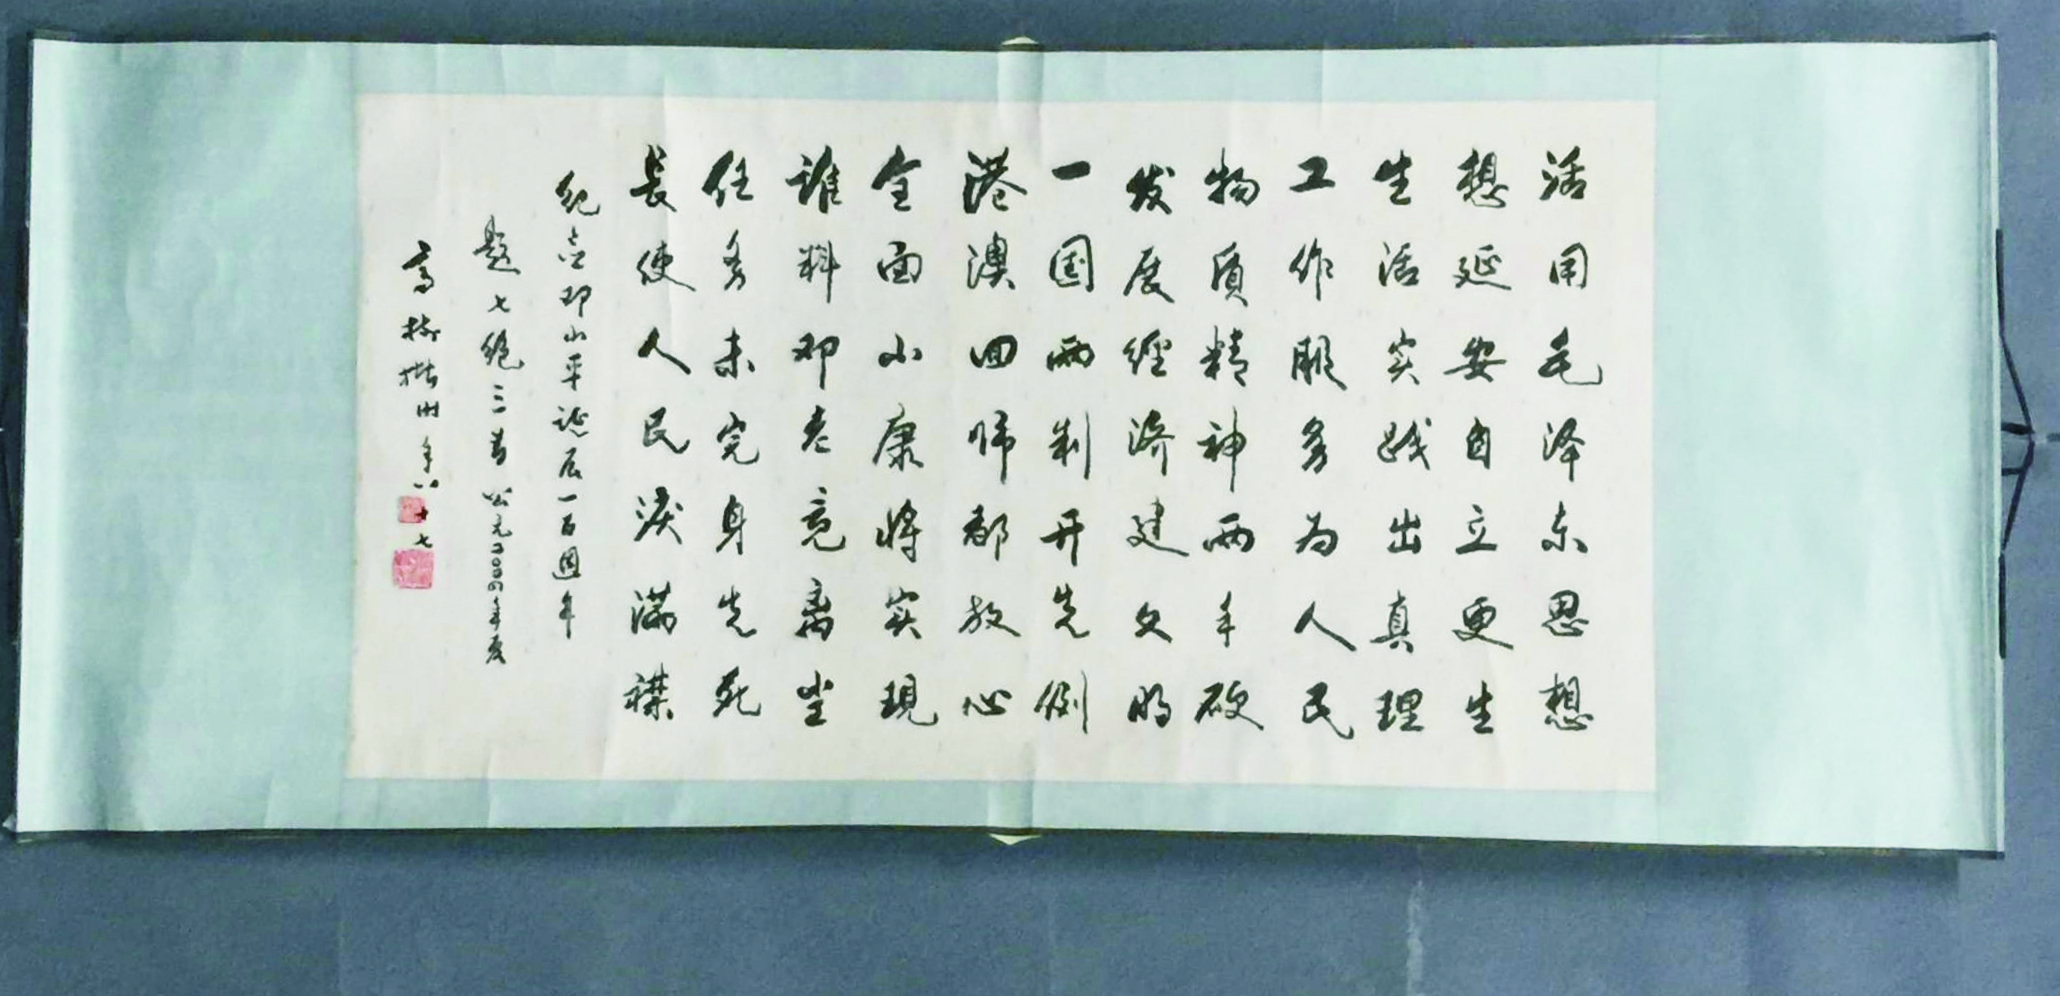 活用毛泽东思想
想延安自立更生
生活实践出真理
工作服务为人民
物质精神两手硬
发展经济建文明
一国两制开先例
港澳回归都放心
全面小康将实现
谁料邓老竟离尘
任务未完身先死
长使人民泪满襟
纪念邓小平诞辰一百周年
题七绝三首 公元二〇〇四年夏
高树楷时年八十七